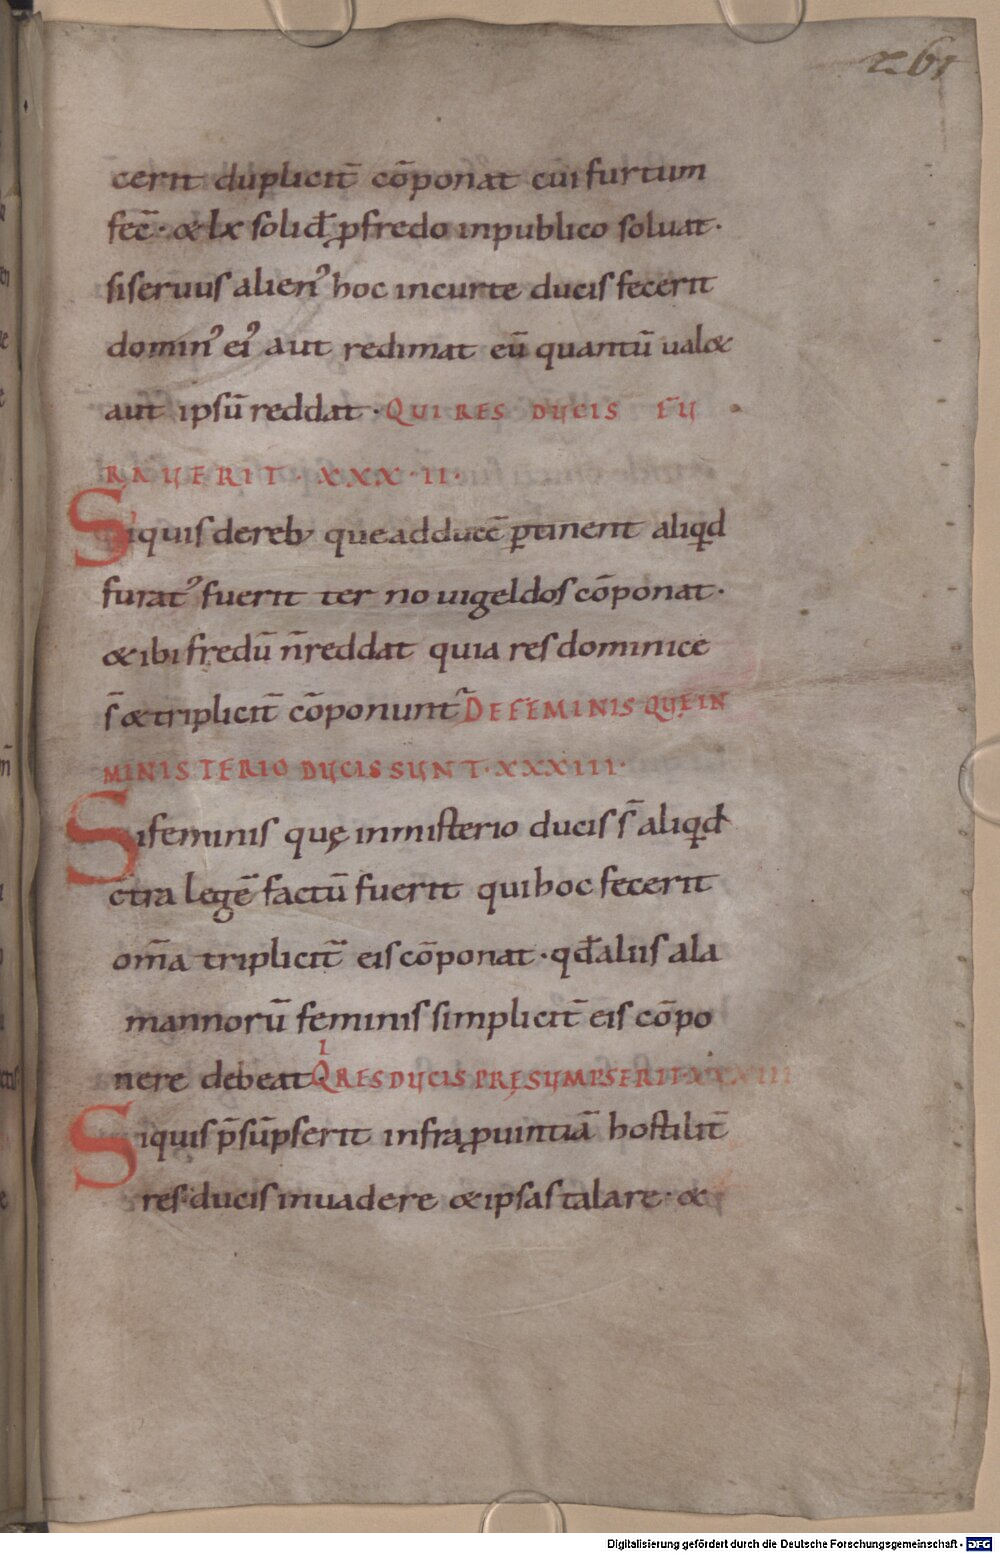 261
cerit duplicit̄ cōponat cui furtum
fec̄· & lx solid̄ ꝑfredo inpublico soluat·
siseruus alienꝰ hoc incurte ducis fecerit
dominꝰ eiꝰ aut redimat eū quantū ualet
aut ipsū reddat· QUI RES DUCIS FU
RAUERIT· XXX·II·
Siquis dereb; que adducē ꝑtinent aliqd
furatꝰ fuerit ter no uigeldos cōponat·
& ibi fredū n̄reddat quia res dominice
s̄ & triplicit̄ cōponunt᷑ DE FEMINIS QUE IN
MINISTERIO DUCIS SUNT·XXXIII·
Sifeminis quę inmisterio ducis s̄ aliqd
ctra legē factū fuerit qui hoc fecerit
om̄a triplicit̄ eis cōponat· qd̄ aliis ala
mannorū feminis simplicit̄ eis cōpo
nere debeat QI RES DUCIS PRESUMPSERIT·XXXIIII
Siquis p̄sūpserit infra ꝓuintiā hostilit̄
res ducis inuadere & ipsas talare· &
Digitalisierung gefördert durch die Deutsche Forschungsgemeinschaft - DFG